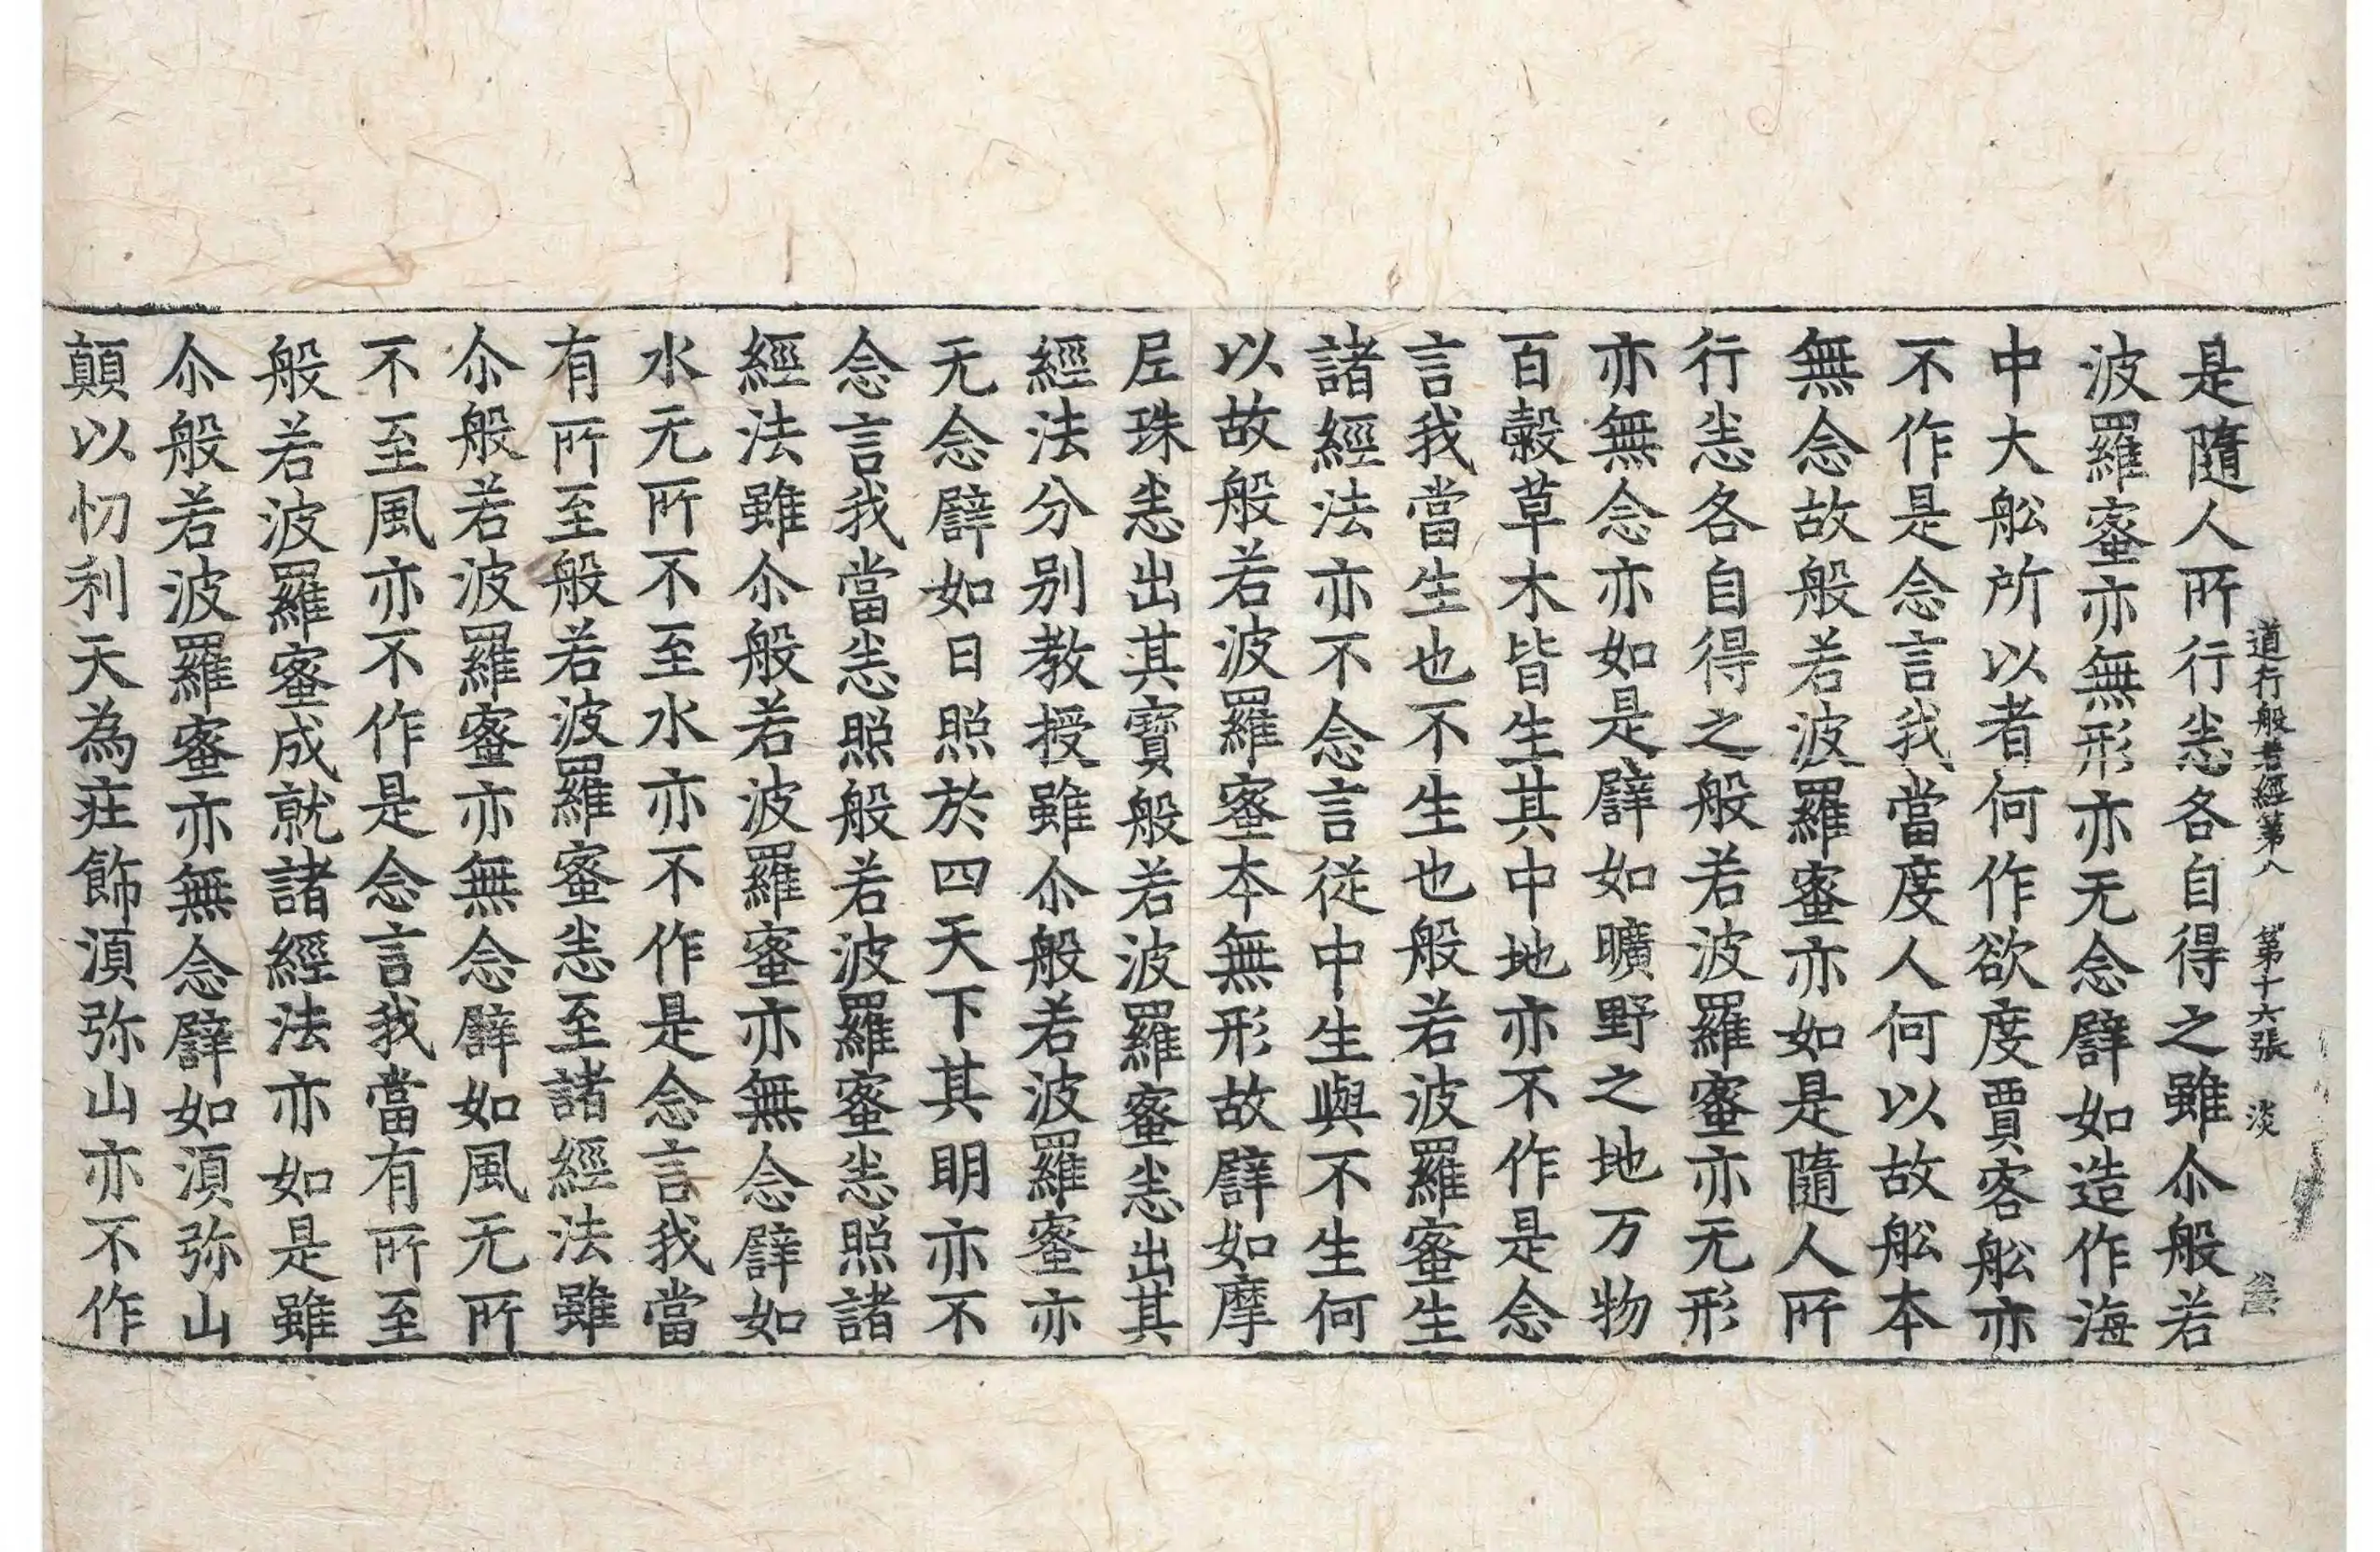 道行般若經第八　第十六張　淡
是隨人所行恙各自得之雖尒般若
波羅蜜亦無形亦无念譬如造作海
中大舩所以者何作欲度賈客舩亦
不作是念言我當度人何以故舩本
無念故般若波羅蜜亦如是隨人所
行恙各自得之般若波羅蜜亦无形
亦無念亦如是譬如曠野之地万物
百穀草木皆生其中地亦不作是念
言我當生也不生也般若波羅蜜生
諸經法亦不念言從中生與不生何
以故般若波羅蜜本無形故譬如摩
尼珠恙出其寶般若波羅蜜恙出其
經法分别教授雖尒般若波羅蜜亦
无念譬如日照於四天下其明亦不
念言我當恙照般若波羅蜜恙照諸
經法雖尒般若波羅蜜亦無念譬如
水无所不至水亦不作是念言我當
有所至般若波羅蜜恙至諸經法雖
尒般若波羅蜜亦無念譬如風无所
不至風亦不作是念言我當有所至
般若波羅蜜成就諸經法亦如是雖
尒般若波羅蜜亦無念譬如湏弥山
顛以忉利天為疘飾湏弥山亦不作